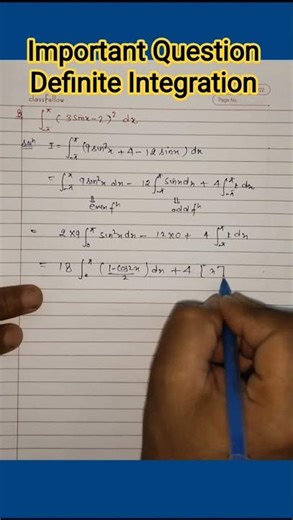 Important Question
Definite Integration
classfellow
Page No.
Q ∫_{-π}^{π} (3sinx-2)² dx
Solⁿ I = ∫_{-π}^{π} (9sin²x + 4 - 12sinx) dx
= ∫_{-π}^{π} 9sin²x dx - 12 ∫_{-π}^{π} sinx dx + 4 ∫_{-π}^{π} 1 dx
⇓ ⇓
even fⁿ odd fⁿ
= 2×9 ∫_{0}^{π} sin²x dx - 12×0 + 4 ∫_{-π}^{π} 1 dx
= 18 ∫_{0}^{π} (1-cos2x / 2) dx + 4 [x]